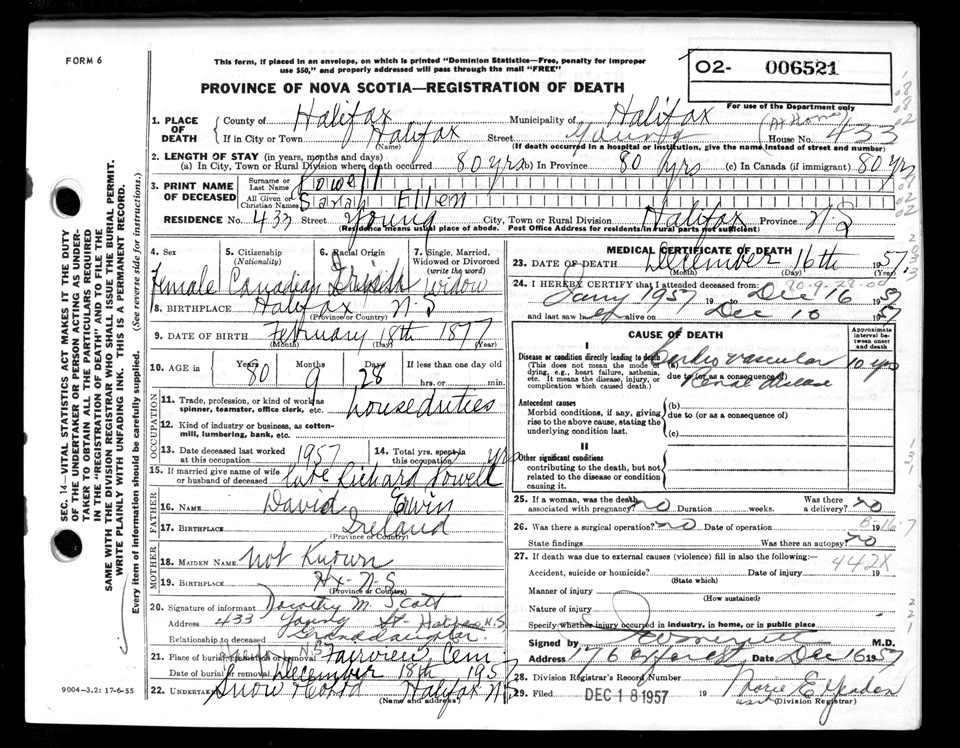 FORM 6
This form, if placed in an envelope, on which is printed "Dominion Statistics—Free, penalty for improper
use $50," and properly addressed will pass through the mail "FREE"
O2- 006521
PROVINCE OF NOVA SCOTIA—REGISTRATION OF DEATH
For use of the Department only
1. PLACE OF DEATH County of Halifax Municipality of Halifax
If in City or Town Halifax (Name) Street Young (At Home) House No. 433
(If death occurred in a hospital or institution, give the name instead of street and number)
2. LENGTH OF STAY (in years, months and days)
(a) In City, Town or Rural Division where death occurred 80 yrs (b) In Province 80 yrs (c) In Canada (if immigrant) 80 yrs
3. PRINT NAME OF DECEASED Surname or Last Name Powell
All Given or Christian Names Sarah Ellen
RESIDENCE No. 433 Street Young City, Town or Rural Division Halifax Province N.S
(Residence means usual place of abode. Post Office Address for residents in rural parts not sufficient)
4. Sex Female
5. Citizenship (Nationality) Canadian
6. Racial Origin Irish
7. Single, Married, Widowed or Divorced (write the word) Widow
8. BIRTHPLACE Halifax N.S
(Province or Country)
9. DATE OF BIRTH February 18th 1877
(Month) (Day) (Year)
10. AGE in Years 80 Months 9 Days 28 If less than one day old
hrs. or min.
OCCUPATION
11. Trade, profession, or kind of work as spinner, teamster, office clerk, etc. house duties
12. Kind of industry or business, as cotton-mill, lumbering, bank, etc.
13. Date deceased last worked at this occupation 1957
14. Total yrs. spent in this occupation yrs
15. If married give name of wife or husband of deceased late Richard Powell
FATHER
16. NAME David Erwin
17. BIRTHPLACE Ireland
(Province or Country)
MOTHER
18. MAIDEN NAME Not Known
19. BIRTHPLACE Hx- N-S
(Province or Country)
20. Signature of informant Dorothy M. Scott
Address 433 Young St- Halifax N.S.
Relationship to deceased Granddaughter
21. Place of burial, cremation or removal N.S Fairview Cem
Date of burial or removal December 18th 1957
22. UNDERTAKER Snow & Co Ltd Halifax N.S
(Name and address)
9004-3.2: 17-6-55
MEDICAL CERTIFICATE OF DEATH
23. DATE OF DEATH December 16th 1957
(Month) (Day) (Year)
24. I HEREBY CERTIFY that I attended deceased from: 80-9-28-00
Jany 1957 19 to Dec 16 1957
and last saw her alive on Dec 10 1957
CAUSE OF DEATH
Approximate interval between onset and death
I
Disease or condition directly leading to death
(This does not mean the mode of dying, e.g., heart failure, asthenia, etc. It means the disease, injury, or complication which caused death.)
(a) Cardio vascular 10 yrs
due to (or as a consequence of)
Renal disease
Antecedent causes
Morbid conditions, if any, giving rise to the above cause, stating the underlying condition last.
(b)
due to (or as a consequence of)
(c)
II
Other significant conditions
contributing to the death, but not related to the disease or condition causing it.
25. If a woman, was the death associated with pregnancy? no Duration weeks. Was there a delivery? no
26. Was there a surgical operation? no Date of operation 19
State findings Was there an autopsy? no
27. If death was due to external causes (violence) fill in also the following:— 442X
Accident, suicide or homicide? Date of injury 19
(State which)
Manner of injury
(How sustained)
Nature of injury
Specify whether injury occurred in industry, in home, or in public place
Signed by M.D.
Address Date Dec 16 1957
28. Division Registrar's Record Number
29. Filed DEC 18 1957 19
(Division Registrar)
SEC. 14—VITAL STATISTICS ACT MAKES IT THE DUTY
OF THE UNDERTAKER OR PERSON ACTING AS UNDER-
TAKER TO OBTAIN ALL THE PARTICULARS REQUIRED
IN THE "REGISTRATION OF DEATH" AND TO FILE THE
SAME WITH THE DIVISION REGISTRAR WHO SHALL ISSUE THE BURIAL PERMIT.
WRITE PLAINLY WITH UNFADING INK. THIS IS A PERMANENT RECORD.
Every item of information should be carefully supplied. (See reverse side for instructions.)